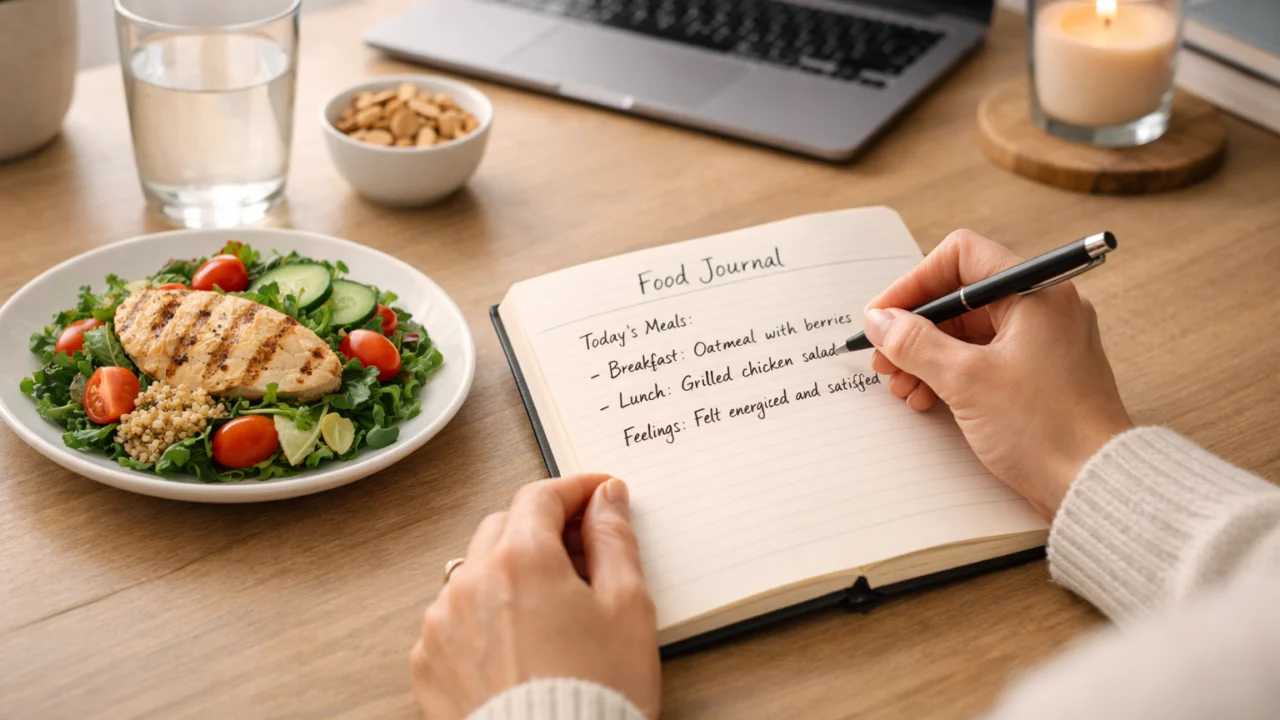 Food Journal
Today's Meals:
- Breakfast: Oatmeal with berries
- Lunch: Grilled chicken salad
Feelings: Felt energiced and satisfed